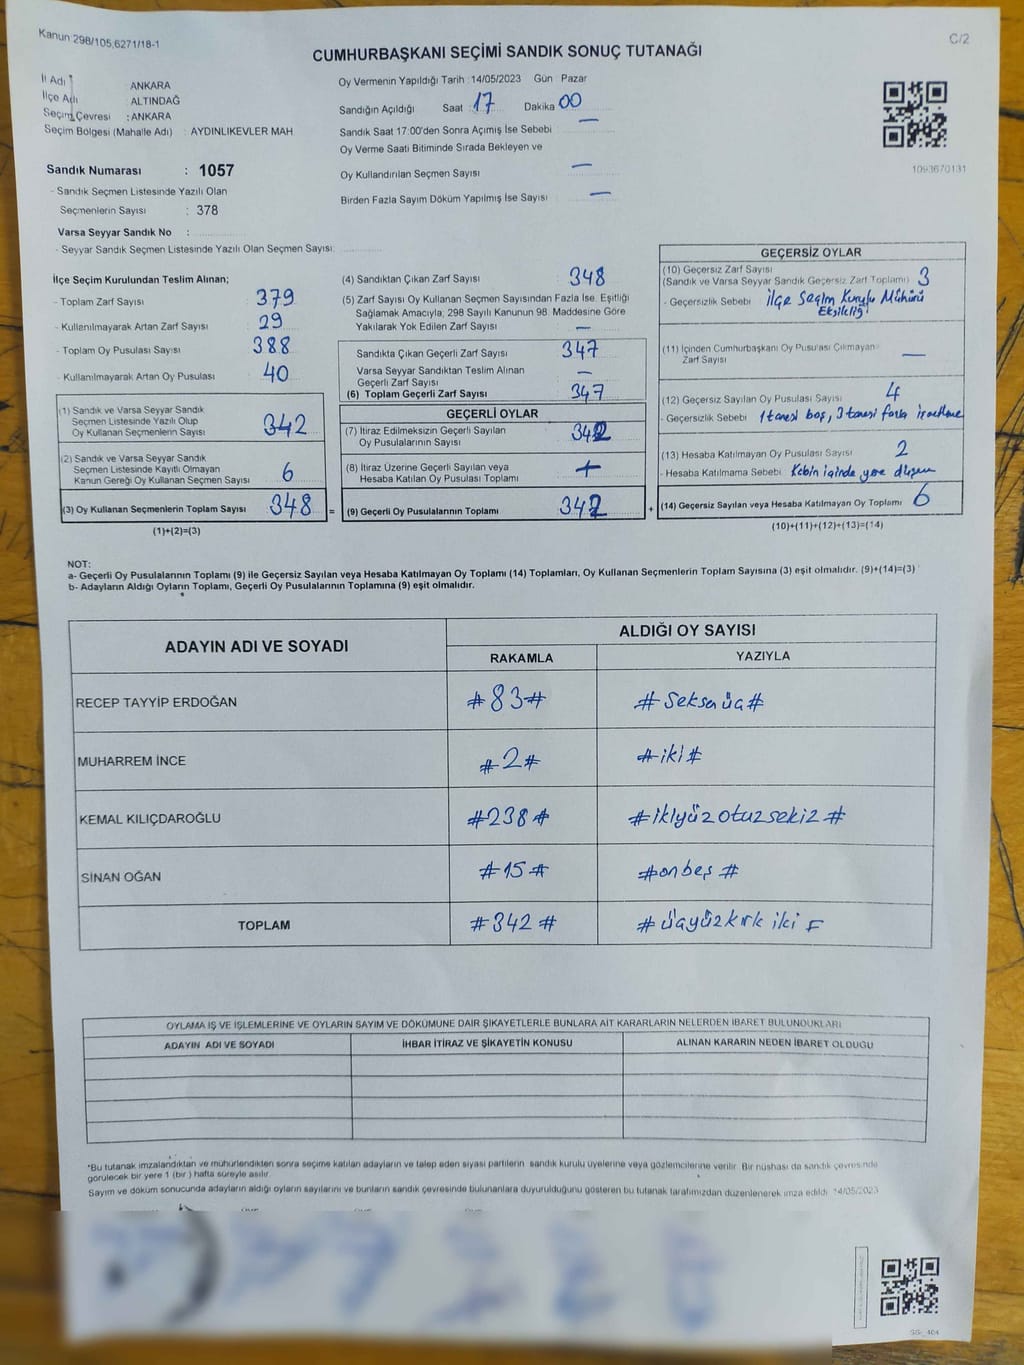 Kanun 298/105,6271/18-1
C/2
CUMHURBAŞKANI SEÇİMİ SANDIK SONUÇ TUTANAĞI
İl Adı : ANKARA
İlçe Adı : ALTINDAĞ
Seçim Çevresi : ANKARA
Seçim Bölgesi (Mahalle Adı) : AYDINLIKEVLER MAH
Oy Vermenin Yapıldığı Tarih : 14/05/2023 Gün Pazar
Sandığın Açıldığı Saat : 17 Dakika 00
Sandık Saat 17:00'den Sonra Açımış İse Sebebi —
Oy Verme Saati Bitiminde Sırada Bekleyen ve
Oy Kullandırılan Seçmen Sayısı —
Birden Fazla Sayım Döküm Yapılmış İse Sayısı —
1093670131
Sandık Numarası : 1057
- Sandık Seçmen Listesinde Yazılı Olan
Seçmenlerin Sayısı : 378
Varsa Seyyar Sandık No :
- Seyyar Sandık Seçmen Listesinde Yazılı Olan Seçmen Sayısı:
İlçe Seçim Kurulundan Teslim Alınan;
- Toplam Zarf Sayısı : 379
- Kullanılmayarak Artan Zarf Sayısı : 29
- Toplam Oy Pusulası Sayısı : 388
- Kullanılmayarak Artan Oy Pusulası : 40
(1) Sandık ve Varsa Seyyar Sandık
Seçmen Listesinde Yazılı Olup
Oy Kullanan Seçmenlerin Sayısı : 342
(2) Sandık ve Varsa Seyyar Sandık
Seçmen Listesinde Kayıtlı Olmayan
Kanun Gereği Oy Kullanan Seçmen Sayısı : 6
(3) Oy Kullanan Seçmenlerin Toplam Sayısı : 348 =
(1)+(2)=(3)
(4) Sandıktan Çıkan Zarf Sayısı : 348
(5) Zarf Sayısı Oy Kullanan Seçmen Sayısından Fazla İse, Eşitliği
Sağlamak Amacıyla; 298 Sayılı Kanunun 98. Maddesine Göre
Yakılarak Yok Edilen Zarf Sayısı : —
Sandıkta Çıkan Geçerli Zarf Sayısı : 347
Varsa Seyyar Sandıktan Teslim Alınan
Geçerli Zarf Sayısı : —
(6) Toplam Geçerli Zarf Sayısı : 347
GEÇERLİ OYLAR
(7) İtiraz Edilmeksizin Geçerli Sayılan
Oy Pusulalarının Sayısı : 342
(8) İtiraz Üzerine Geçerli Sayılan veya
Hesaba Katılan Oy Pusulası Toplamı :
(9) Geçerli Oy Pusulalarının Toplamı : 342 +
GEÇERSİZ OYLAR
(10) Geçersiz Zarf Sayısı
(Sandık ve Varsa Seyyar Sandık Geçersiz Zarf Toplamı) : 3
- Geçersizlik Sebebi : İlçe Seçim Kurulu Mühürü
Eksikliği
(11) İçinden Cumhurbaşkanı Oy Pusulası Çıkmayan
Zarf Sayısı : —
(12) Geçersiz Sayılan Oy Pusulası Sayısı : 4
- Geçersizlik Sebebi : 1 tanesi boş, 3 tanesi fazla
(13) Hesaba Katılmayan Oy Pusulası Sayısı : 2
- Hesaba Katılmama Sebebi : Kabin içinde yere düşen
(14) Geçersiz Sayılan veya Hesaba Katılmayan Oy Toplamı : 6
(10)+(11)+(12)+(13)=(14)
NOT:
a- Geçerli Oy Pusulalarının Toplamı (9) ile Geçersiz Sayılan veya Hesaba Katılmayan Oy Toplamı (14) Toplamları, Oy Kullanan Seçmenlerin Toplam Sayısına (3) eşit olmalıdır. (9)+(14)=(3)
b- Adayların Aldığı Oyların Toplamı, Geçerli Oy Pusulalarının Toplamına (9) eşit olmalıdır.
ADAYIN ADI VE SOYADI
ALDIĞI OY SAYISI
RAKAMLA YAZIYLA
RECEP TAYYİP ERDOĞAN #83# #Seksenüç#
MUHARREM İNCE #2# #iki#
KEMAL KILIÇDAROĞLU #238# #ikiyüzotuzsekiz#
SİNAN OĞAN #15# #onbeş#
TOPLAM #342# #üçyüzkırk iki #
OYLAMA İŞ VE İŞLEMLERİNE VE OYLARIN SAYIM VE DÖKÜMÜNE DAİR ŞİKAYETLERLE BUNLARA AİT KARARLARIN NELERDEN İBARET BULUNDUKLARI
ADAYIN ADI VE SOYADI İHBAR İTİRAZ VE ŞİKAYETİN KONUSU ALINAN KARARIN NEDEN İBARET OLDUĞU
*Bu tutanak imzalandıktan ve mühürlendikten sonra seçime katılan adayların ve talep eden siyasi partilerin sandık kurulu üyelerine veya gözlemcilerine verilir. Bir nüshası da sandık çevresinde
görülecek bir yere 1 (bir ) hafta süreyle asılır.
Sayım ve döküm sonucunda adayların aldığı oyların sayılarını ve bunların sandık çevresinde bulunanlara duyurulduğunu gösteren bu tutanak tarafımızdan düzenlenerek imza edildi. 14/05/2023